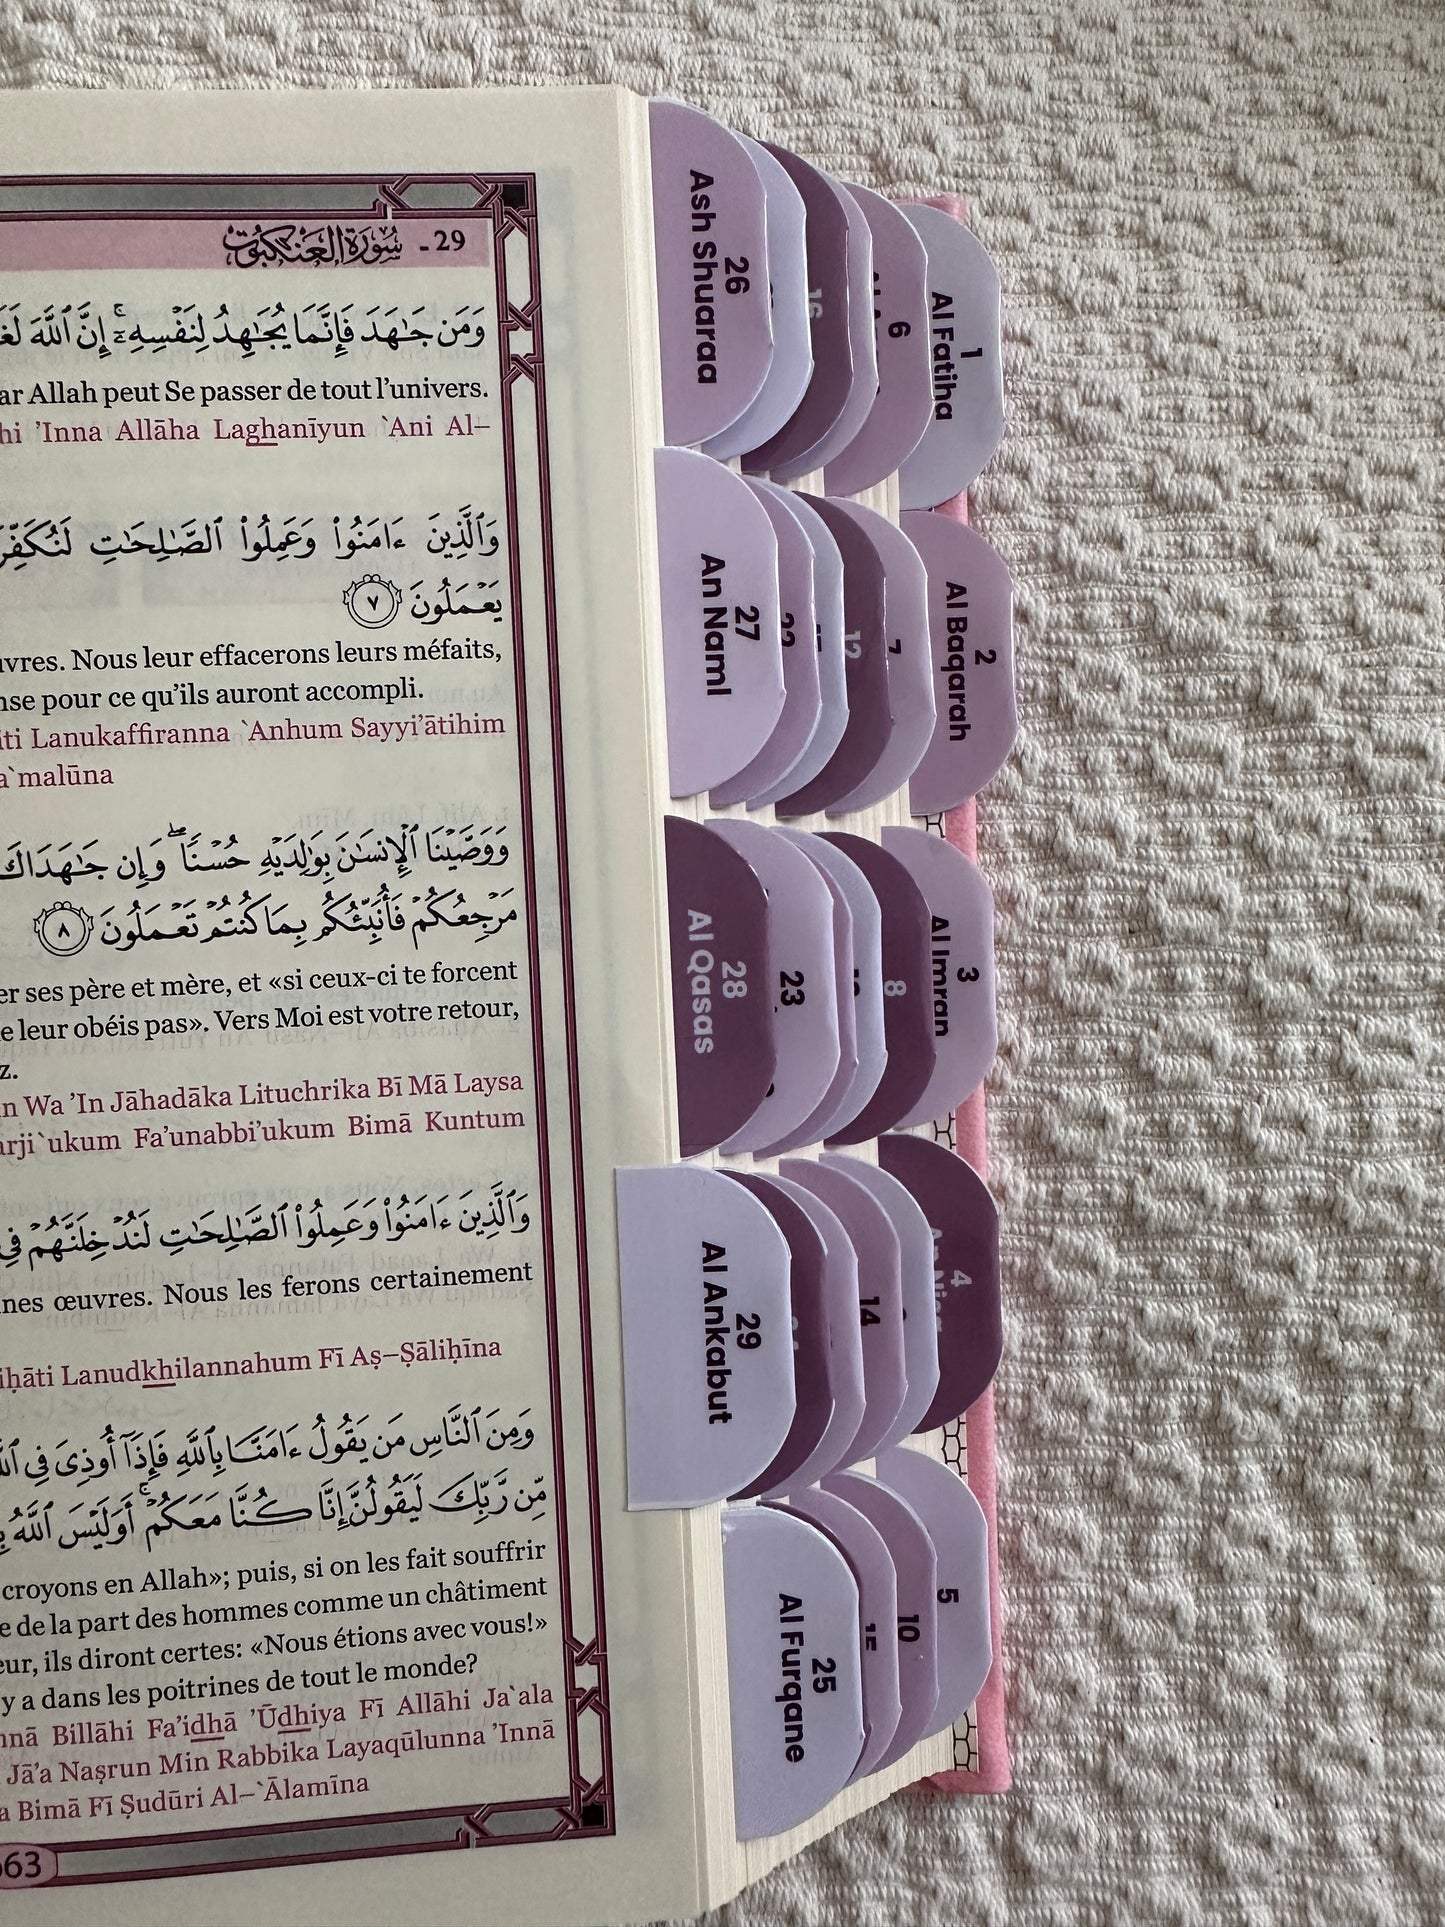 29 - سُورَةُ العَنكَبُوت
وَمَن جَٰهَدَ فَإِنَّمَا يُجَٰهِدُ لِنَفۡسِهِۦٓۚ إِنَّ ٱللَّهَ
ar Allah peut Se passer de tout l’univers.
hi ’Inna Allāha Laghanīyun `Ani Al–
وَٱلَّذِينَ ءَامَنُواْ وَعَمِلُواْ ٱلصَّٰلِحَٰتِ
يَعۡمَلُونَ ٧
uvres. Nous leur effacerons leurs méfaits,
nse pour ce qu’ils auront accompli.
iti Lanukaffiranna `Anhum Sayyi’ātihim
a`malūna
وَوَصَّيۡنَا ٱلۡإِنسَٰنَ بِوَٰلِدَيۡهِ حُسۡنٗاۖ وَإِن جَٰهَدَاكَ
مَرۡجِعُكُمۡ فَأُنَبِّئُكُم بِمَا كُنتُمۡ تَعۡمَلُونَ ٨
er ses père et mère, et «si ceux-ci te forcent
e leur obéis pas». Vers Moi est votre retour,
z.
n Wa ’In Jāhadāka Lituchrika Bī Mā Laysa
arji`ukum Fa’unabbi’ukum Bimā Kuntum
وَٱلَّذِينَ ءَامَنُواْ وَعَمِلُواْ ٱلصَّٰلِحَٰتِ لَنُدۡخِلَنَّهُمۡ فِي
nes œuvres. Nous les ferons certainement
iḥāti Lanudkhilannahum Fī Aṣ–Ṣāliḥīna
وَمِنَ ٱلنَّاسِ مَن يَقُولُ ءَامَنَّا بِٱللَّهِ فَإِذَآ أُوذِيَ فِي
مِّن رَّبِّكَ لَيَقُولُنَّ إِنَّا كُنَّا مَعَكُمۡۚ أَوَلَيۡسَ ٱللَّهُ
croyons en Allah»; puis, si on les fait souffrir
e de la part des hommes comme un châtiment
eur, ils diront certes: «Nous étions avec vous!»
y a dans les poitrines de tout le monde?
nnā Billāhi Fa’idhā ’Ūdhiya Fī Allāhi Ja`ala
Jā’a Naṣrun Min Rabbika Layaqūlunna ’Innā
a Bimā Fī Ṣudūri Al–`Ālamīna
663
26
Ash Shuaraa
16
6
1
Al Fatiha
27
An Naml
22
12
7
2
Al Baqarah
28
Al Qasas
23
8
3
Al Imran
29
Al Ankabut
14
4
An Nisa
25
Al Furqane
15
10
5